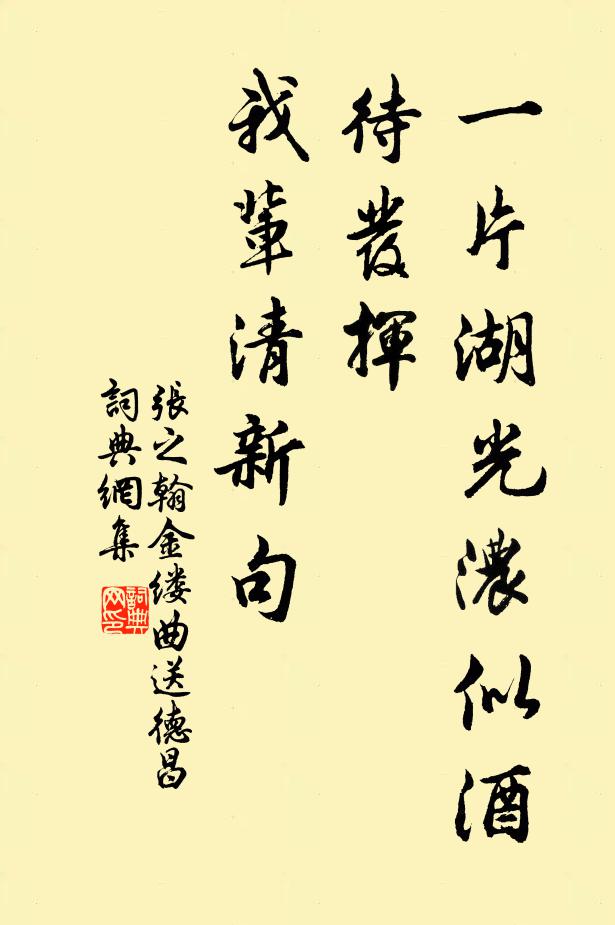 一片湖光濃似酒
待發揮
我輩清新句
張之翰金缕曲送德昌
詞典網集
詞典網印